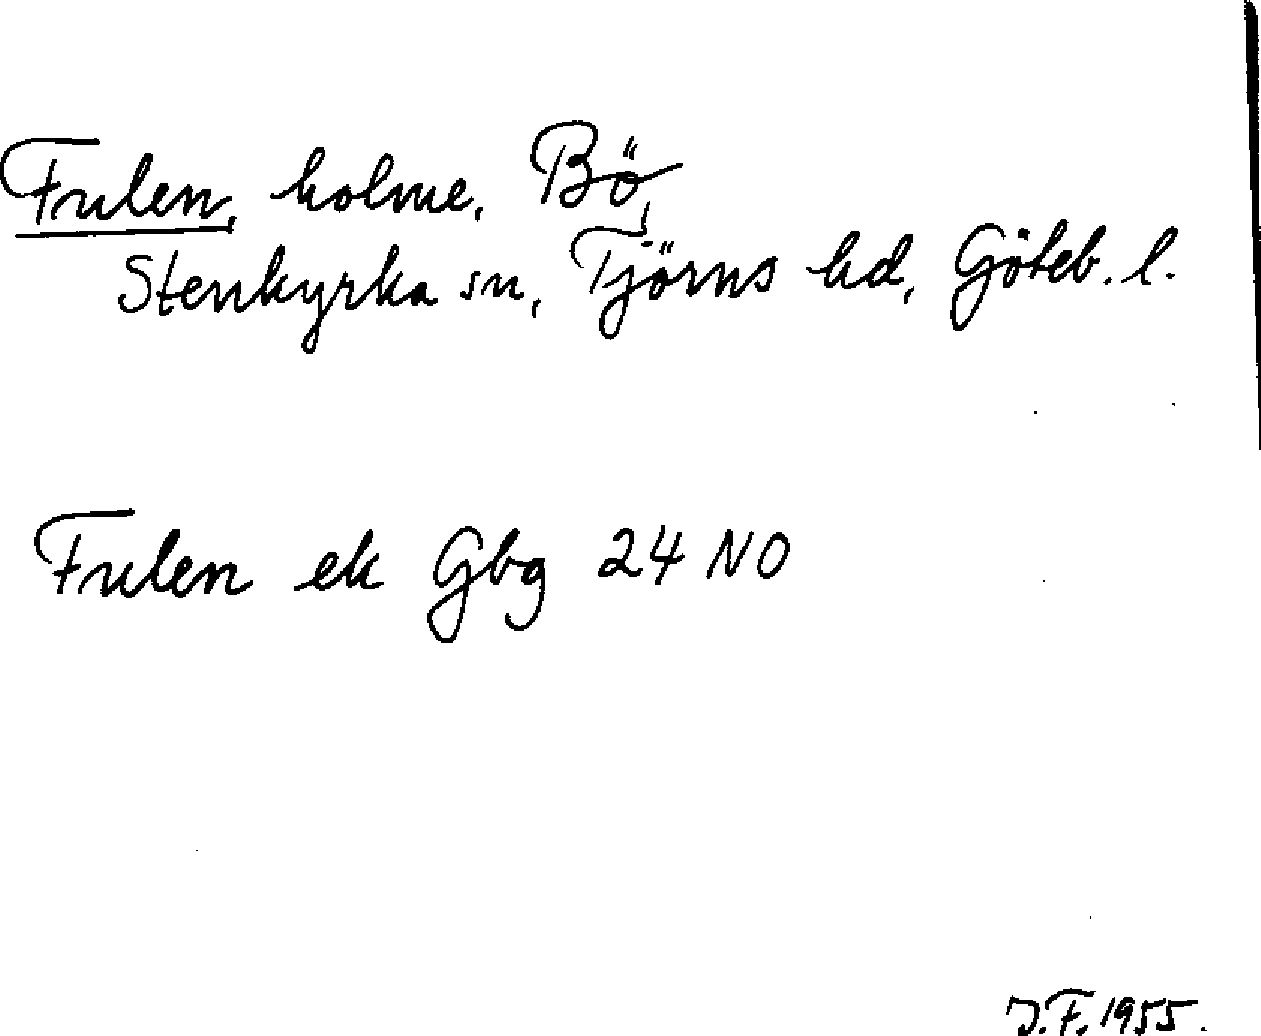 Fulen, holme, Bö,
Stenkyrka sn, Tjörns hd, Göteb. l.
Fulen ek Gbg 24 NO
J.F. 1955.